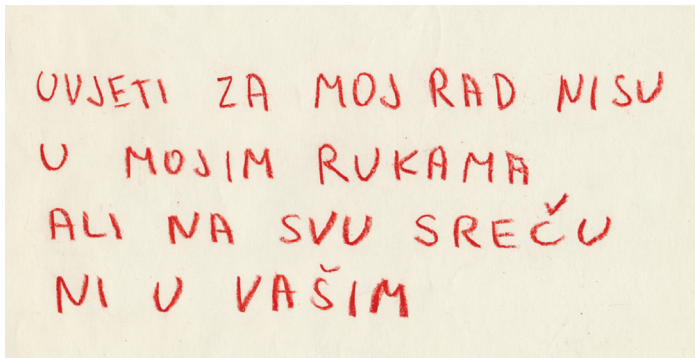 UVJETI ZA MOJ RAD NISU
U MOJIM RUKAMA
ALI NA SVU SREČU
NI U VAŠIM